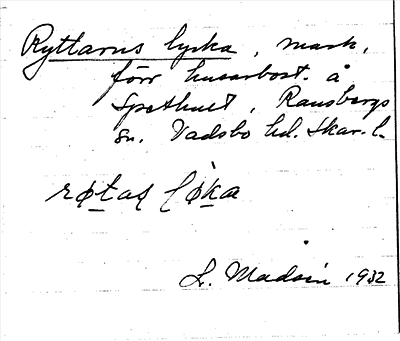 Ryttarns lycka, mark,
förr husarbost. å
Spethult, Ransbergs
sn. Vadsbo hd. Skar. l.
røtaṣ ḷøka
L. Madsén 1932